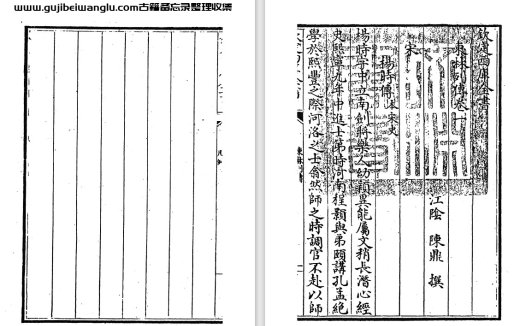 www.gujibeiwanglu.com古籍备忘录整理收集
欽定四庫全書
東林列傳卷一
江陰 陳鼎 撰
宋
楊時傳 本宋史
楊時字中立南劍將樂人幼穎異能屬文稍長潛心經
史熙寧九年中進士第時河南程顥與弟頤講孔孟絕
學於熙豐之際河洛之士翕然師之時調官不赴以師